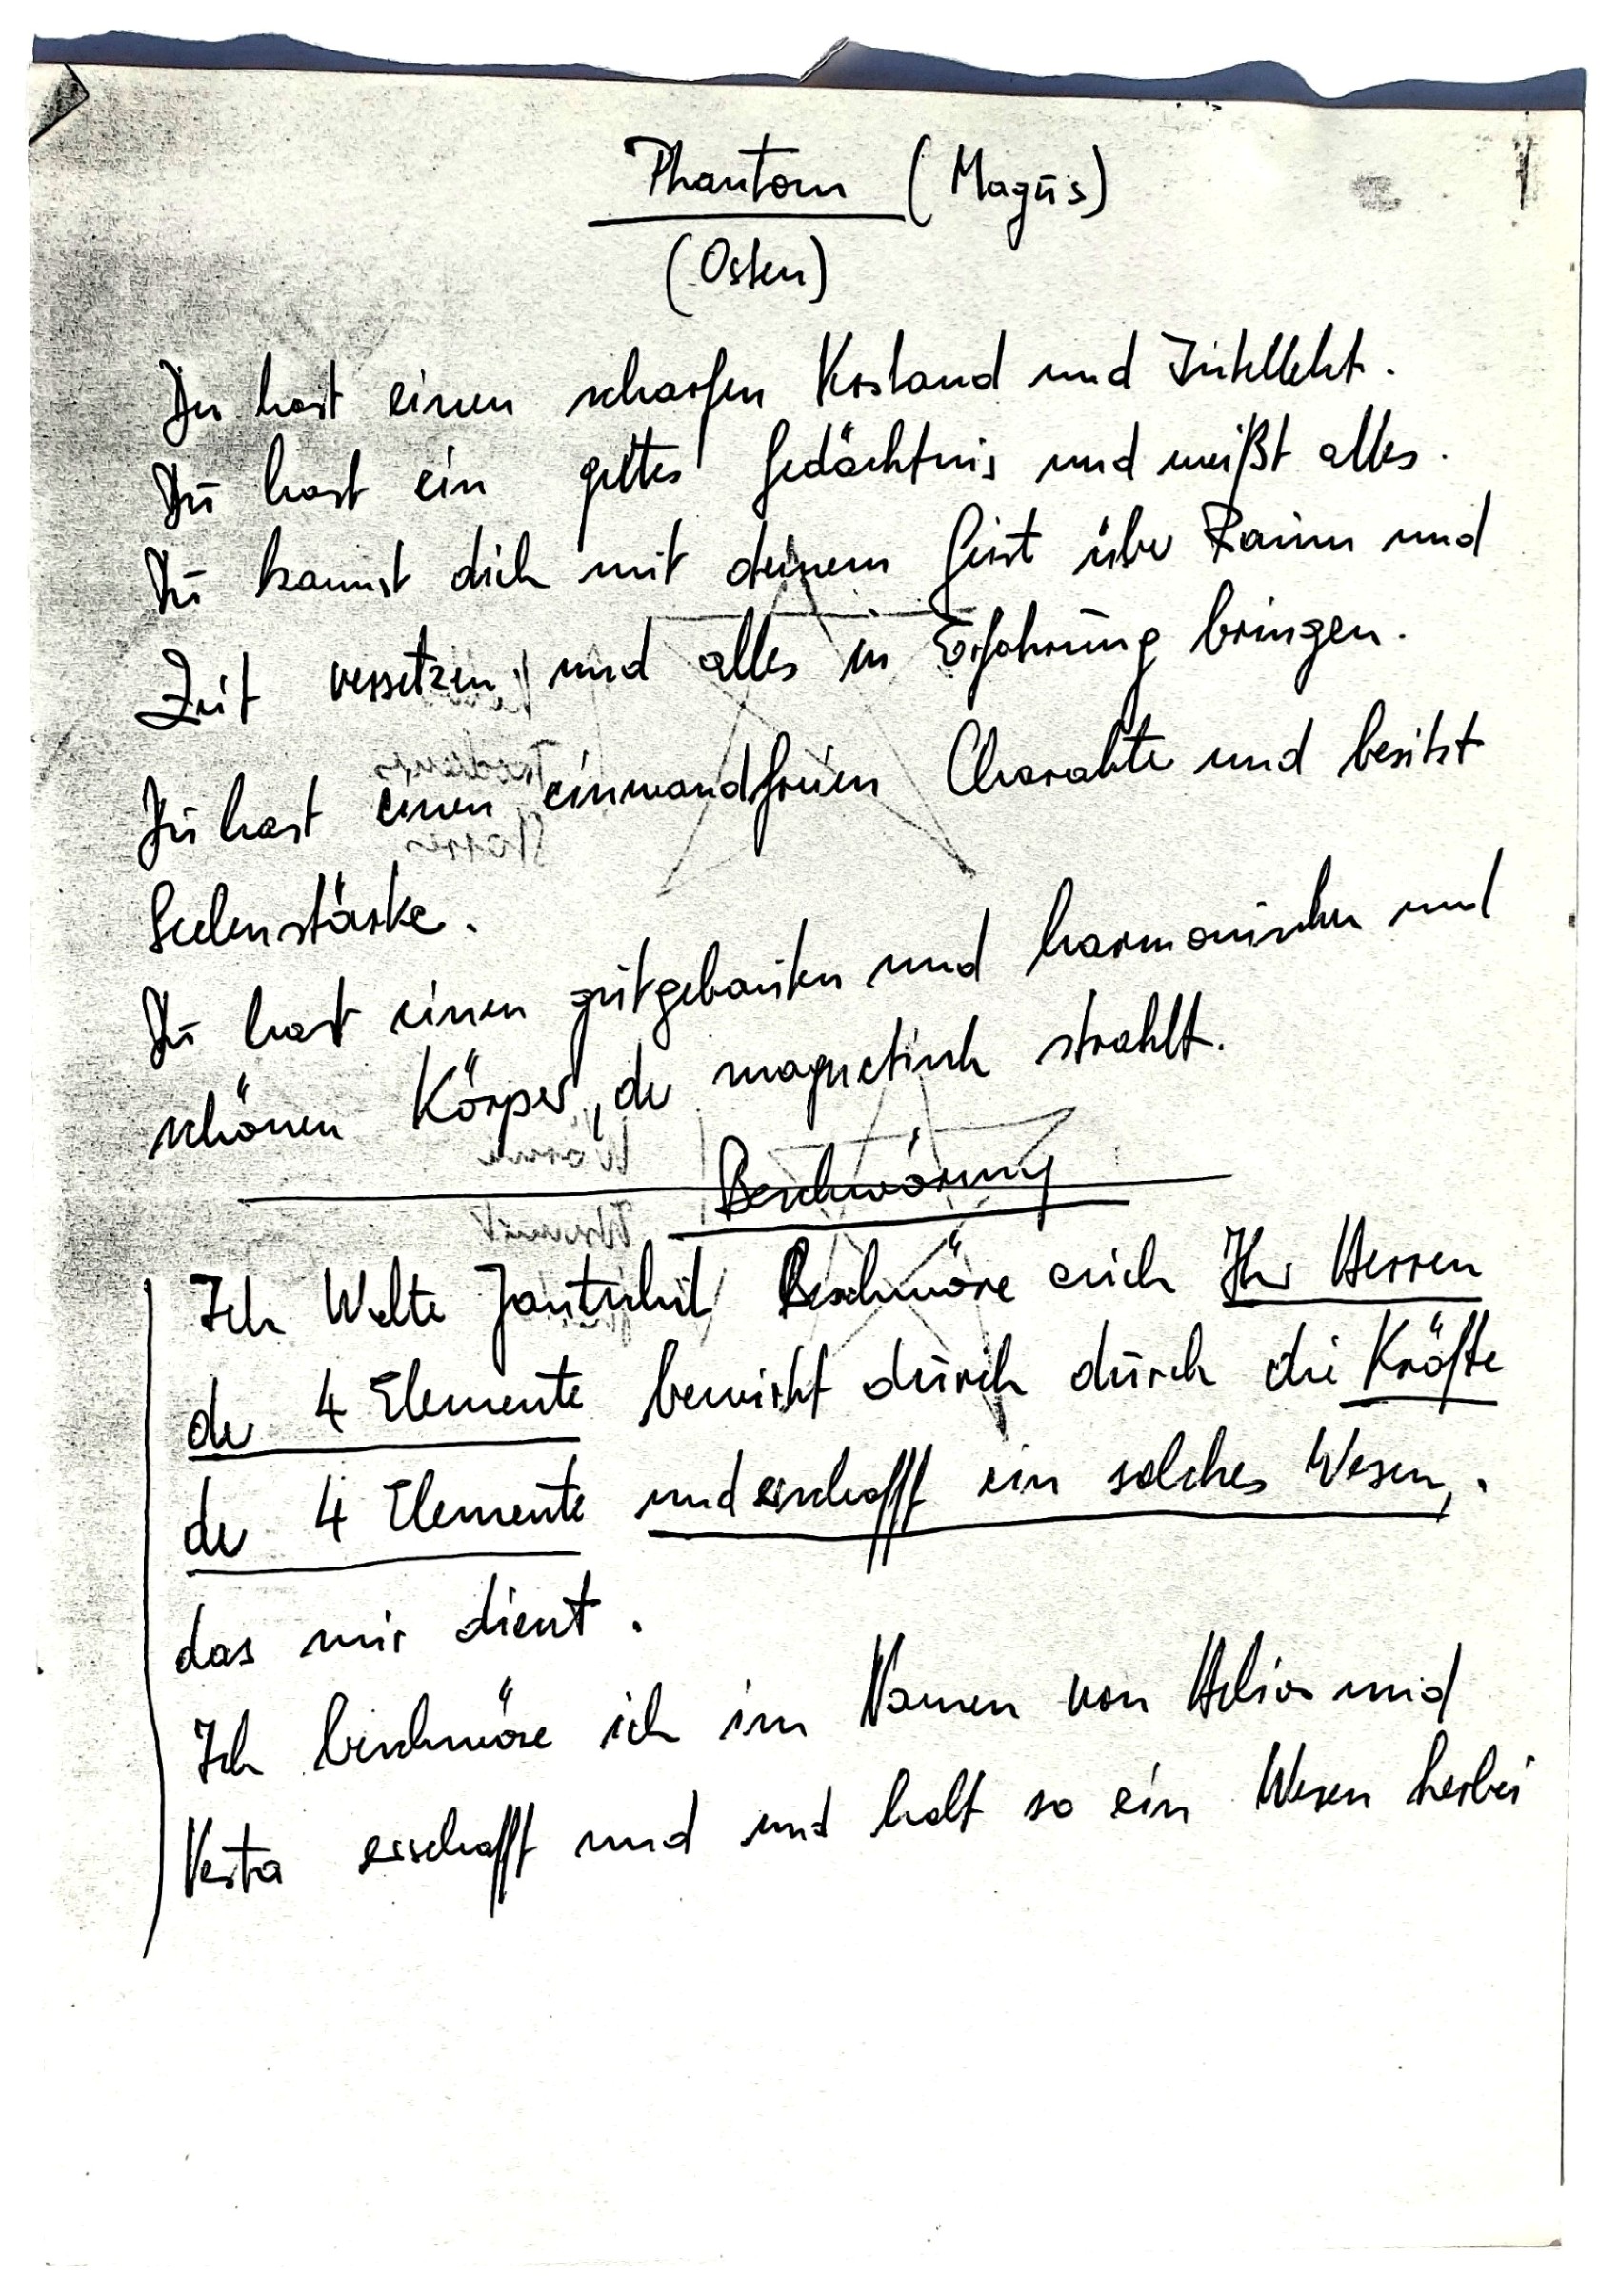 Phantom (Magus)
(Osten)
Du hast einen scharfen Verstand und Intellekt.
Du hast ein gutes Gedächtnis und weißt alles.
Du kannst dich mit deinem Geist über Raum und
Zeit versetzen und alles in Erfahrung bringen.
Du hast einen einwandfreien Charakter und besitzt
Seelenstärke.
Du hast einen gutgebauten und harmonischen und
schönen Körper, der magnetisch strahlt.
Beschwörung
Ich Walter Beschwöre euch Ihr Herren
der 4 Elemente bewirkt durch durch die Kräfte
der 4 Elemente und erschafft ein solches Wesen,.
das mir dient.
Ich beschwöre ich im Namen von Helios und
Vesta erschafft und und holt so ein Wesen herbei